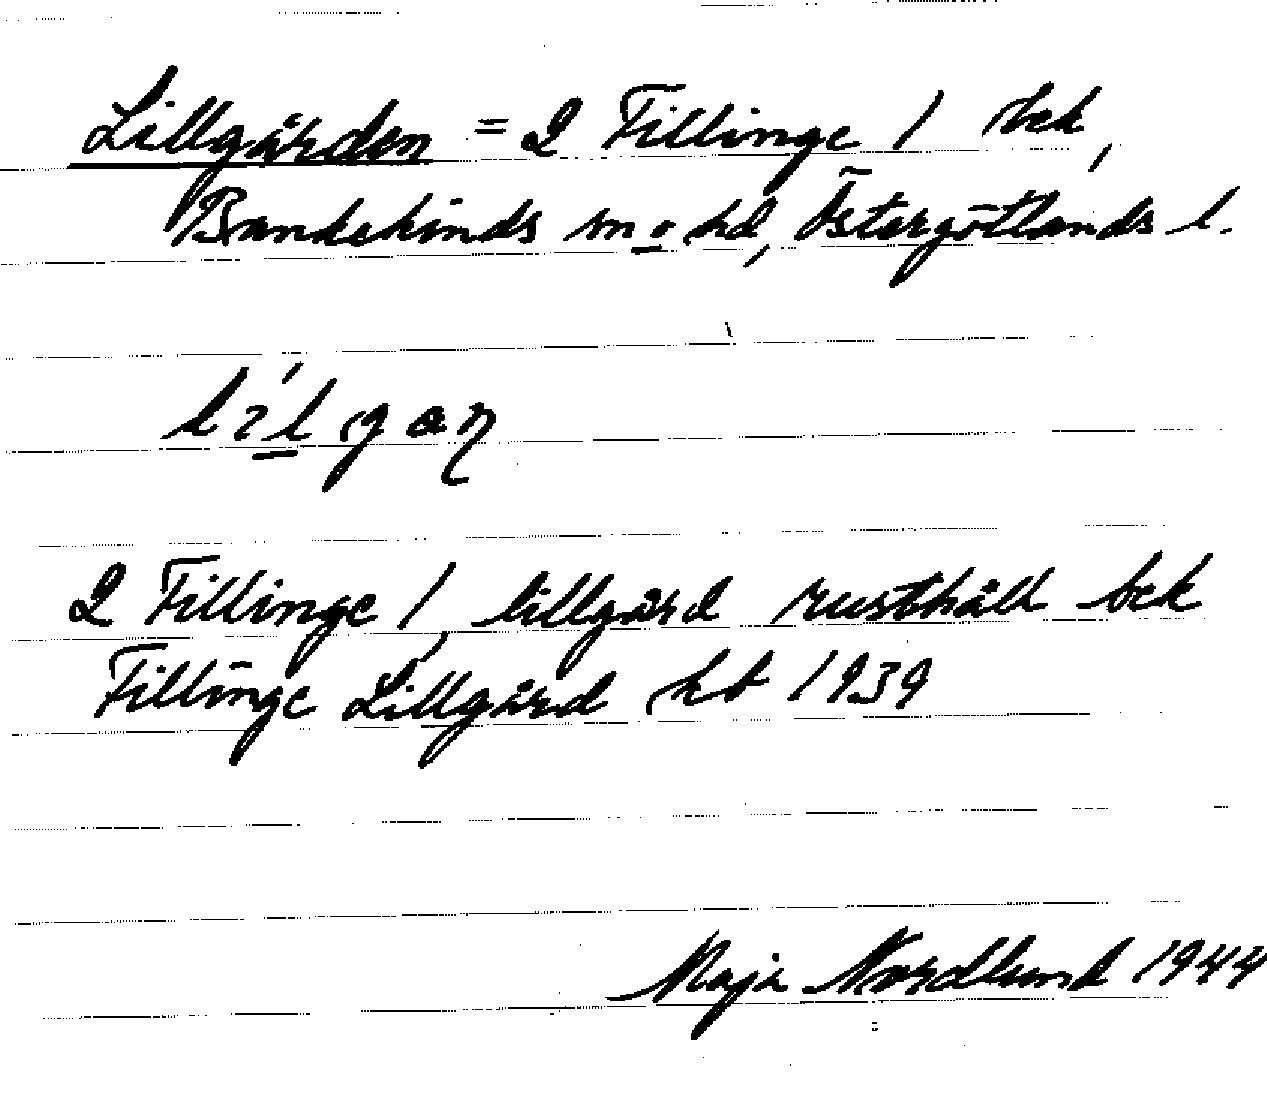 Lillgården = 2 Fillinge / bek,
Bankekinds sn o hd, Östergötlands l.
2 Fillinge / lillgård rusthåll bek
Fillinge, Lillgård kb 1939
Maja Nordlund 1944